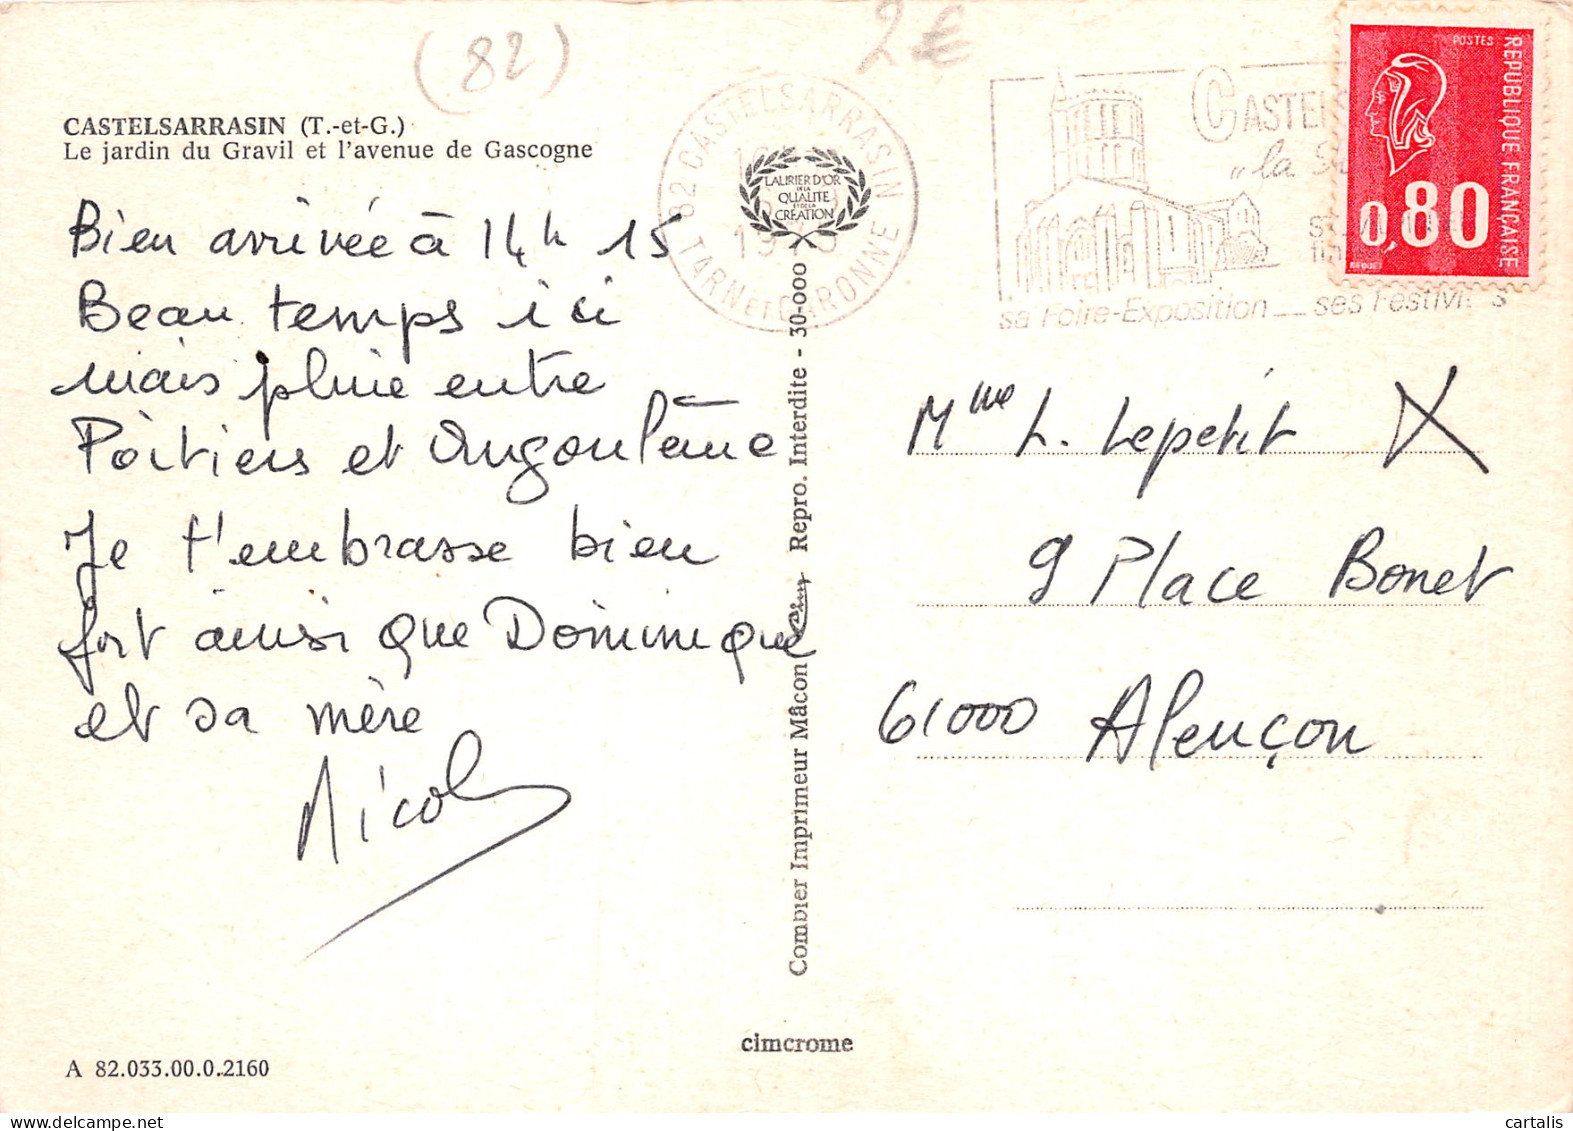 (82)
2€
CASTELSARRASIN (T.-et-G.)
Le jardin du Gravil et l'avenue de Gascogne
Bien arrivée à 14h 15
Beau temps ici
mais pluie entre
Poitiers et Angoulême
Je t'embrasse bien
fort ainsi que Dominique
et sa mère
Nicole
A 82.033.00.0.2160
82 CASTELSARRASIN
TARN et GARONNE
LAURIER D'OR
DE LA
QUALITE
ET DE LA
CREATION
Combier Imprimeur Mâcon Repro. Interdite - 30-000
cimcrome
"la
sa Foire-Exposition __ ses Festivités
POSTES
REPUBLIQUE FRANÇAISE
0,80
Mme L. Lepetit
9 Place Bonet
61000 Alençon
cartalis
delcampe.net